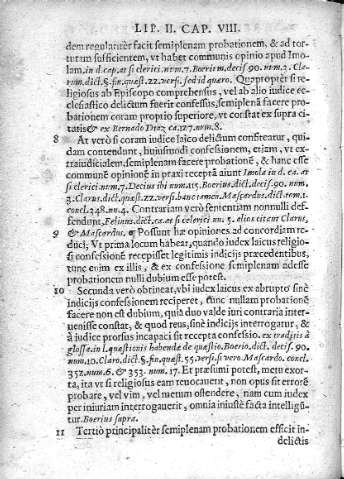 LIB. II. CAP. VIII.
dem regulariter facit semiplenam probationem, & ad tor-
turam sufficientem, vt habet communis opinio apud Imo-
lam, in d. cap. at si clerici. num. 7. Boerium. decis. 90. num. 2. Cla-
rum. dict. §. fin. quæst. 22. vers. sed id quæro. Quapropter si re-
ligiosus ab Episcopo comprehensus, vel ab alio iudice ec-
clesiastico delictum fuerit confessus, semiplenã facere pro-
bationem coram proprio superiore, vt constat ex supra ci-
tatis & ex Bernado Diaz ca. 127. num. 8.
8 At verò si coram iudice laico delictum confiteatur, qui-
dam contendunt, huiusmodi confessionem, etiam, vt ex-
traiudicialem, semiplenam facere probationẽ, & hanc esse
communẽ opinionẽ in praxi receptã aiunt Imola in d. ca. at
si clerici num. 7. Decius ibi num. 115. Boerius. dict. decis. 90. num.
3. Clarus. dict. quæst. 22. versi. hanc tamen. Mascardus. dict. tom. 1.
concl. 348. nu. 4. Contrariam verò sententiam nonnulli def-
fendunt, Felinus. dict. ca. at si clerici nu. 5. alios citant Clarus,
9 & Mascardus. Possunt hæ opiniones ad concordiam re-
duci, Vt prima locum habeat, quando iudex laicus religio-
si confessionẽ recepisset legitimis indicijs præcedentibus,
tunc enim ex illis, & ex confessione semiplenam adesse
probationem nulli dubium esse potest.
10 Secunda verò obtineat, vbi iudex laicus ex abrupto sinè
indicijs confessionem reciperet, tunc nullam probationẽ
facere non est dubium, quia duo valde iuri contraria inter-
uenisse constat, & quod reus, sinè indicijs interrogatur, &
à iudice prorsus incapaci sit recepta confessio. ex traditis à
glossa. in l. quæstionis habende de quæstio. Boerio. dict. decis. 90.
num. 10. Claro. dict. §. fin. quæst. 55. versi. si vero Mascardo. concl.
352. num. 6. & 353. num. 17. Et præsumi potest, metu exor-
ta, ita vt si religiosus eam reuocauerit, non opus sit errorẽ
probare, vel vim, vel metum ostendere, nam cum iudex
per iniuriam interrogauerit, omnia iniustè facta intelligũ-
tur. Boerius supra.
11 Tertiò principalitèr semiplenam probationem efficit in-
delictis